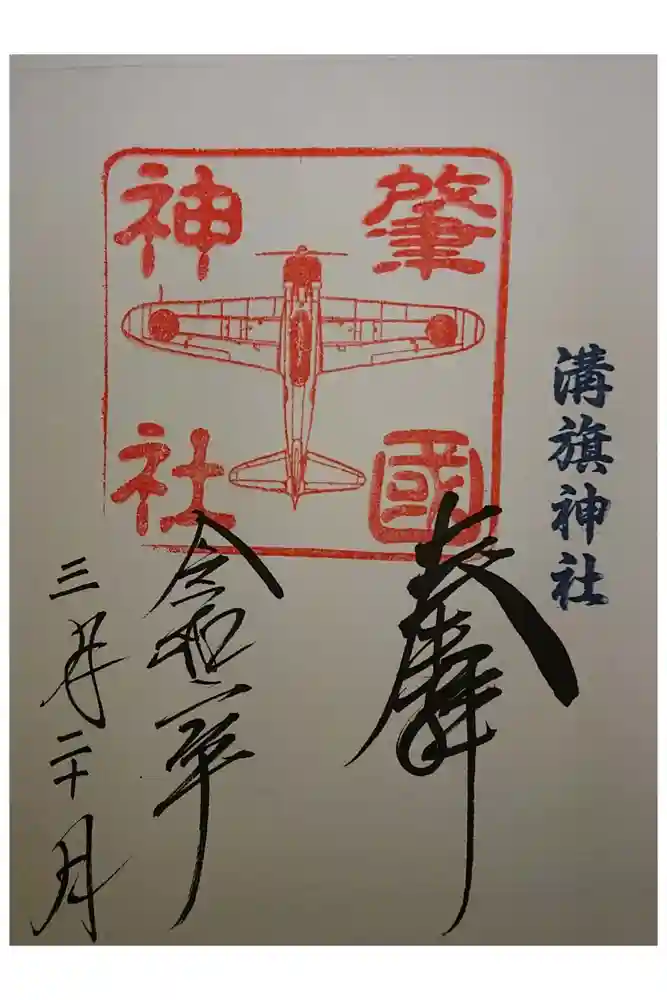 溝旗神社
肇國
神社
奉拝
令和二年
三月二十日